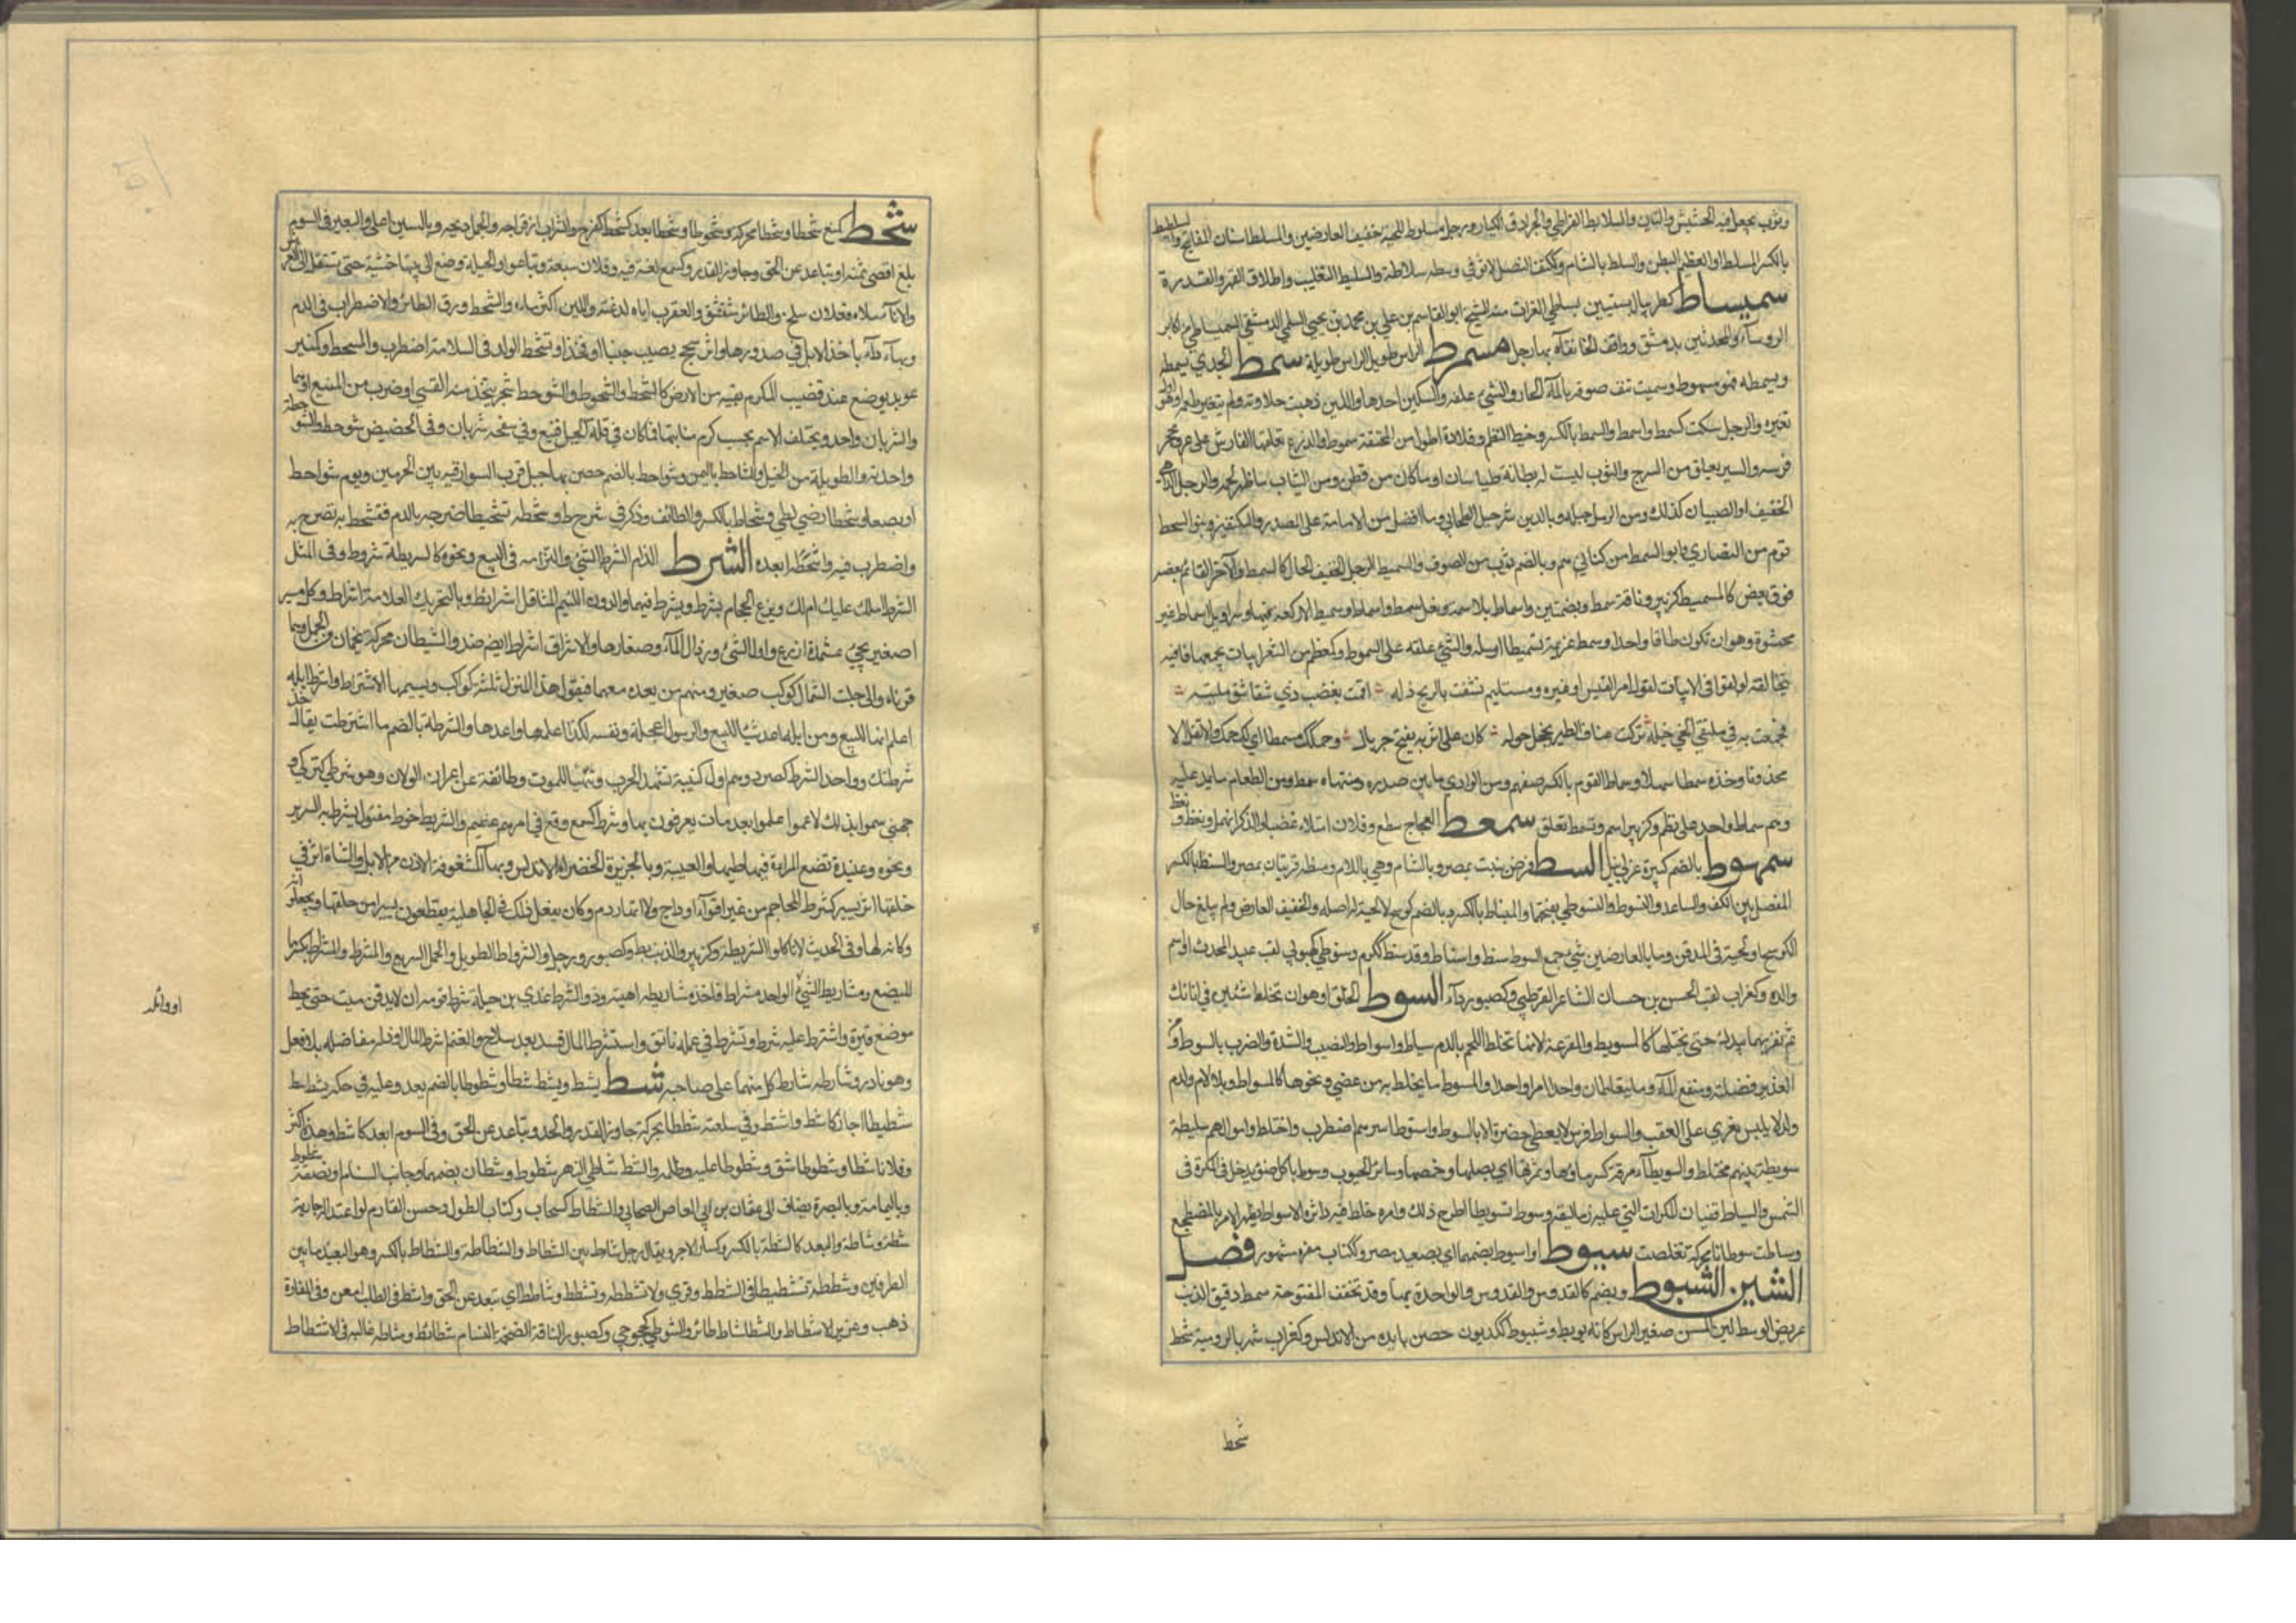 وثوب يجعل فيه الحشيش والتبن والسلائط الفراطي والجرادق الكبار ورجل مسلوط اللحية خفيف العارضين والسلطاسنان المفاتيح والسلطيط
بالكسر المسلط او العظيم البطن والسلط بالشام وككتف النصل لا نتو في وسطه سلاطة والسليط التغليب واطلاق القهر والقدرة
سميساط كطربال بسينين بشاطي الفرات منه الشيخ ابو القاسم بن علي بن محمد بن يحيى السلمي الدمشقي السميساطي من اكابر
الروساء والمحدثين بدمشق وواقف الخانقاه بها رجل مسمرط الراس طويل الراس طويله سمط الجدي يسمطه
ويسمطه فهو مسموط وسميط نتف صوفه بالماء الحار والشي علقه والسكين احدها واللبن ذهبت حلاوته ولم يتغير طعمه
تغيره والرجل سكت كسمط واسمط والسمط بالكسر وخيط النظم وقلادة اطول من المخنقة سموط والدرع يعلقها الفارس على عجز
فرسه والسير يعلق من السرج والثوب ليست له بطانة طيلسان او ما كان من قطن ومن الثياب ما ظهر من تحت والرجل الداهي
الخفيف او الصياد كذلك ومن الرمل حبله وبالدين شرحبيل الصحابي وما افضل من العمامة على الصدر والكتفين وبنو السمط
قوم من النصارى وابو السمط من كناهم وبالضم ثوب من الصوف والسميط الرجل الخفيف الحال كالسمط والآجر القائم بعضه
فوق بعض كالسميط كزبير وناقة سمط وبضمتين واسماط بلا سمة ونعل سمط واسماط وسميط لا رقعة فيها وسراويل اسماط غير
محشوة وهو ان تكون طاقا واحدا وسمط غريمه تسميطا ارسله والشي علقه على السموط وكعظم من الشعر ابيات تجمعها قافية
مخالفة لقوافي الابيات لقول امرئ القيس او غيره ومستلئم كشفت بالرمح ذيله اقمت بعضب ذي شقاشق ميله
فجعت به في ملتقى الحي خيله تركت عتاق الطير تحجل حوله كان على اثوابه نضح جريال وحكمك مسمطا اي لك حكمك ولا تقل الا
محذوفا وخذه سمطا سهلا وسماط القوم بالكسر صفهم ومن الوادي ما بين صدره ومنتهاه سمط ومن الطعام ما يمد عليه
وهم سماط واحد على نظم وكزبير اسم وتسمط تعلق سمعط العجاج سطع وفلان امتلاء غضبا والذكر اتمهل ونعظ
سمهوط بالضم كبيرة غربي النيل السنط قرض ينبت بمصر وبالشام وهي باللام ومنظر قريتان بمصر والسنط بالكسر
المفصل بين الكف والساعد والسنوط والسنوطي بفتحهما والسناط بالكسر وبالضم كوسج لا لحية له اصلا والخفيف العارض ولم يبلغ حال
الكوسج او لحيته في الذقن وما بالعارضين شي جمع السنوط سنط واسناط وقد سنط ككرم وسنوطي كهيولي لقب عبيد المحدث او اسم
والده وكغراب لقب الحسن بن حسان الشاعر القرطبي وكصبور دواء السوط الخلط او هو ان تخلط شيئين في انائك
ثم تضربهما بيدك حتى يختلطا كالتسويط والمقرعة لانها تخلط اللحم بالدم سياط واسواط والنصيب والشدة والضرب بالسوط
الغدير فضلة ومنقع الماء وما يتعاطيان سوطا واحدا امرا واحدا والمسوط ما يخلط به من عصى ونحوها كالمسواط وبلا لام ولد
ولد لابليس يغري على الغضب والمسواط فرس لا يعطي حضره الا بالسوط واستوط امره اضطرب واختلط واموالهم سليطة
سويطة بينهم مختلط والسويطاء مرقة كثر ماؤها وثمرتها اي بصلها وحمصها وسائر الحبوب وسوط باطل ضوء يدخل في الكوة في
الشمس والسياط قضبان الكراث التي عليها زماليقه وسوط تسويطا اخرج ذلك وامره خلط فيه ودارة الاسواط بظهر الابرق بالمضجع
وساطت نفسي سوطانا محركة تقلصت سيوط او اسيوط بضمهما اي بصعيد مصر وككتاب مغن مشهور فصل
الشين الشبوط ويضم كالقدوس والقدوس والواحدة بهاء وقد تخفف المفتوحة سمك دقيق الذنب
عريض الوسط لين المس صغير الراس كانه بربط وشبيوط ككديون حصن بابده من الاندلس وكغراب شهر بالرومية شحط
شحط
شحط كمنع شحطا وشحطا محركة وشحوطا ومشحطا بعد كشحط كفرح والشراب ارق مزاجه والجمل ذبحه وبالسين اعلى والبعير في السوم
بلغ اقصى ثمنه او تباعد عن الحق وجاوز القدر وكسمع لغة فيه وفلان سبقه وتباعد والحبلة وضع الى جنبها خشبة حتى تستقل الى العريش
والاناء ملاه وفلان سلح والطائر شقشق والعقرب اياه لدغته واللبن اكثر ماءه والشحط ذرق الطائر والاضطراب في الدم
وبهاء داء ياخذ الابل في صدورها واثر سحج يصيب جنبا او فخذا وتشحط الولد في السلا اضطرب والمشحط كمنبر
عويد يوضع عند قضيب الكرم يقيه من الارض كالشحط والشحوط والشوحط شجر يتخذ منه القسي او ضرب من النبع او هما
والشريان واحد ويختلف الاسم بحسب كرم منابتها فما كان في قلة الجبل فنبع وفي سفحه شريان وفي الحضيض شوحط والشوحطة
واحدته والطويلة من الخيل والشاحط باليمن وشواحط بالضم حصن بها جبل قرب السوارقيه بين الحرمين ويوم شواحط
او بصعاوشحطا ارض لطي وشحاط بالكسر والطائف وذكر في شرحط وشحطه تشحيطا ضرجه بالدم فتشحط به تضرج به
واضطرب فيه واشحطه ابعده الشرط الزام الشي والتزامه في البيع ونحوه كالشريطة شروط وفي المثل
الشرط املك عليك ام لك وبزغ الحجام يشرط ويشرط فيهما والدون اللئيم السافل اشراط وبالتحريك العلامة اشراط وكل مسيل
صغير يجي من عشرة اذرع واول الشي ورذال المال وصغارها والاشراف اشراط ايضا ضد والشرطان محركة نجمان من الحمل وهما
قرناه والى جانب الشمالي كوكب صغير ومنهم من يعده معهما فيقول هذا المنزل ثلثة كواكب ويسميها الاشراط واشرط ابله
اعلم انها للبيع ومن ابله اعد شيئا للبيع والرسول اعجله ونفسه لكذا اعلمها واعدها والشرطة بالضم ما اشترطت يقال خذ
شرطتك وواحد الشرط كصرد وهم اول كتيبة تشهد الحرب وتتهيا للموت وطائفة من اعوان الولاة وهو شرطي كتركي و
جهني سموا بذلك لانهم اعلموا انفسهم بعلامات يعرفون بها وشرط كسمع وقع في امر عظيم والشريط خوص مفتول يشرط به السرير
ونحوه وعتيدة تضع المراة فيها طيبها والعيبة وبالجزيرة الخضراء الاندلس وبهاء المشقوقة الاذن من الابل والشاة اثر في
حلقها اثر يسير كشرط المحاجم من غير افراء اوداج ولا انهار دم وكان يفعل ذلك في الجاهلية يقطعون يسيرا من حلقها ويجعلونه
ذكاة لها وفي الحديث لا تاكلوا الشريطة وكزبير والد نبيط وكصبور رجل والشرواط الطويل والجمل السريع والمشرط والمشراط بكسرهما
المبضع ومشاريط الشي اوائله الواحد مشراط واخذ مشاريطه اهبته وذو الشرط عدي بن جبلة شرط قومه ان لا يدفن ميت حتى يخط
موضع قبره واشترط عليه شرط وتشرط في عمله تانق واستشرط المال فسد بعد صلاح والغنم شرط المال اي ارذله مفاضلة بلا فعل
وهو نادر وشارطه شارط كل منهما على صاحبه شط يشط ويشط شطا وشطوطا بالضم بعد وعليه في حكمه يشط شط
شطيطا جار كاشط واشتط وفي سلعته شططا محركة جاوز القدر والحد وتباعد عن الحق وفي السوم ابعد كاشط وهذه اكثر
وفلانا شطا وشطوطا شق وشطوطا عليه وظلمه والشط شاطي النهر شطوط وشطان بضمهما وجانب السنام او نصفه شطوط
وباليمامة وبالبصرة يضاف الى عثمان بن ابي العاص الصحابي والشطاط كسحاب وكتاب الطول وحسن القوام او اعتداله جارية
شطة وشاطة والبعد كالشطة بالكسر وكسار الاجر ويقال رجل شاط بين الشطاط والشطاطة والشطاط بالكسر وهو البعيد ما بين
الطرفين وشططه تشطيطا في الشطط وقرئ ولا تشطط وتشطط وتشاطط اي تبعد عن الحق واشط في الطلب امعن وفي المفازة
ذهب وعزير الاشطاط والشطشاط طائر والشوطى كخجوجي وكصبور الناقة الضخمة السنام شطائط وشاطه غالبه في الاشتطاط
اوائله